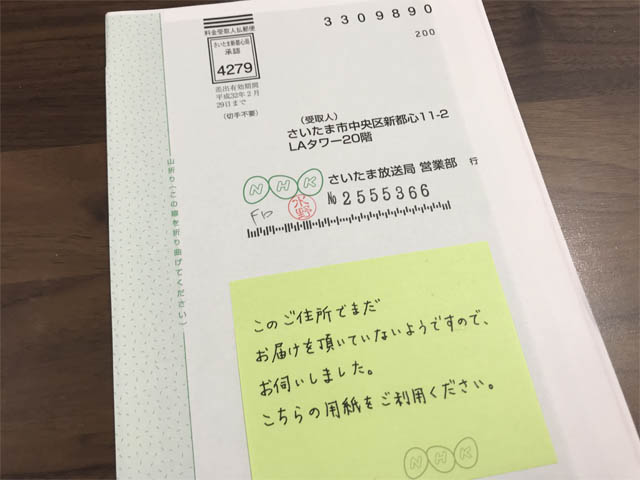 料金受取人払郵便
さいたま新都心局
承認
4279
差出有効期間
平成32年2月
29日まで
(切手不要)
3309890
200
(受取人)
さいたま市中央区新都心11-2
LAタワー20階
NHK さいたま放送局 営業部 行
水野
No 2555366
山折り(この線を折り曲げてください)
このご住所でまだ
お届けを頂いていないようですので、
お伺いしました。
こちらの用紙をご利用ください。
NHK